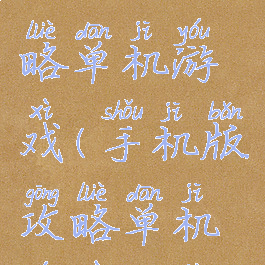 lüè dān jī yóu
略单机游
xì shǒu jī bǎn
戏(手机版
gōng lüè dān jī
攻略单机